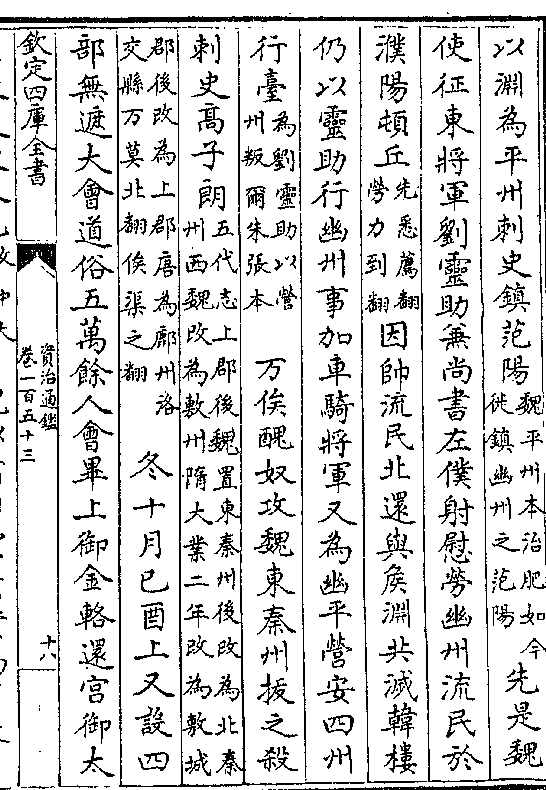 以淵為平州刺史鎮范陽魏平州本治肥如今徙鎮幽州之范陽先是魏
使征東將軍劉靈助兼尚書左僕射慰勞幽州流民於
濮陽頓丘先悉薦翻勞力到翻因帥流民北還與侯淵共滅韓樓
仍以靈助行幽州事加車騎將軍又為幽平營安四州
行臺為劉靈助以營州叛爾朱張本 万俟醜奴攻魏東秦州拔之殺
刺史高子朗五代志上郡後魏置東秦州後改為北秦州西魏改為敷州隋大業二年改為敷城
郡後改為上郡唐為鄜州洛交縣万莫北翻俟渠之翻 冬十月已酉上又設四
部無遮大會道俗五萬餘人會畢上御金輅還宮御太
欽定四庫全書
資治通鑑
卷一百五十三
十八